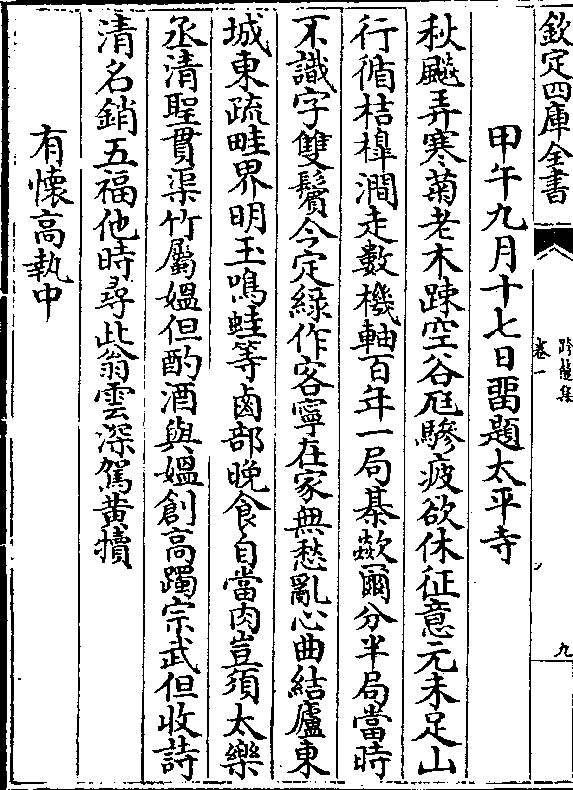 欽定四庫全書
跨鼇集
卷一
九
甲午九月十七日留題太平寺
秋飈弄寒菊老木踈空谷尫驂疲欲休征意元未足山
行循桔橰澗走數機軸百年一局棊歘爾分半局當時
不識字雙鬢今定綠作客寧在家無愁亂心曲結廬東
城東疏畦界明玉鳴蛙等鹵部晚食自當肉豈須太樂
丞清聖貫渠竹屬媪但酌酒與媪創高躅宗武但收詩
清名銷五福他時尋此翁雲深駕黄犢
有懷高執中